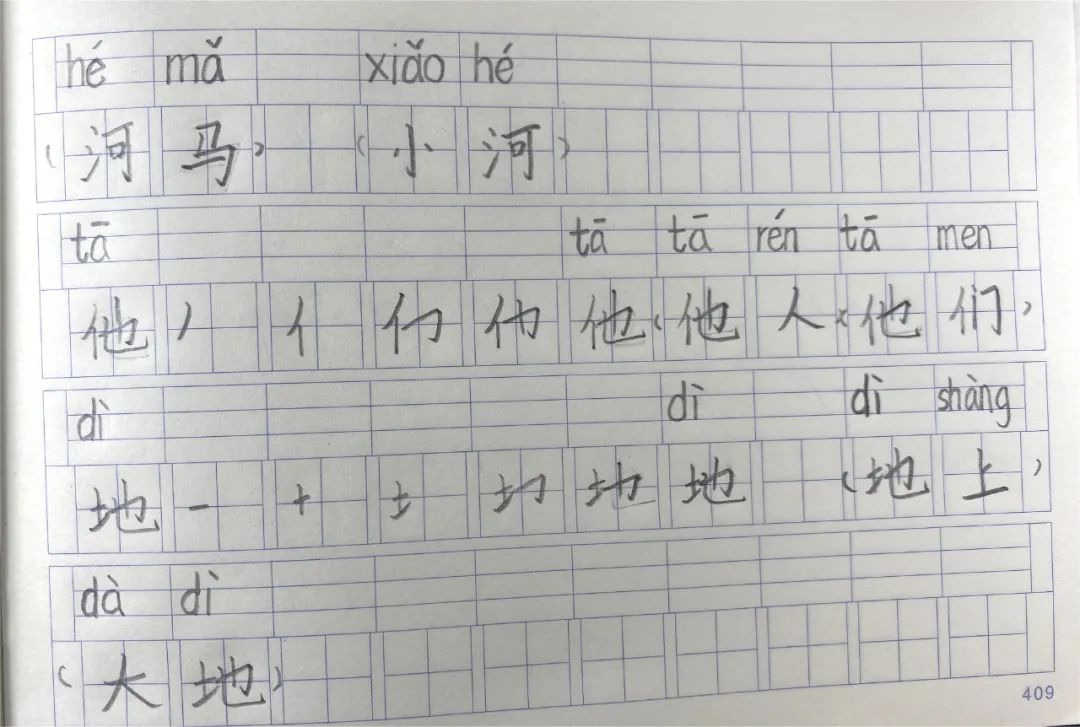 hé mǎ xiǎo hé
(河马) (小河)
tā tā tā rén tā men
他丿亻亻㇆仂他(他人)(他们)
dì dì dì shàng
地一十土圹地地(地上)
dà dì
(大地)
409